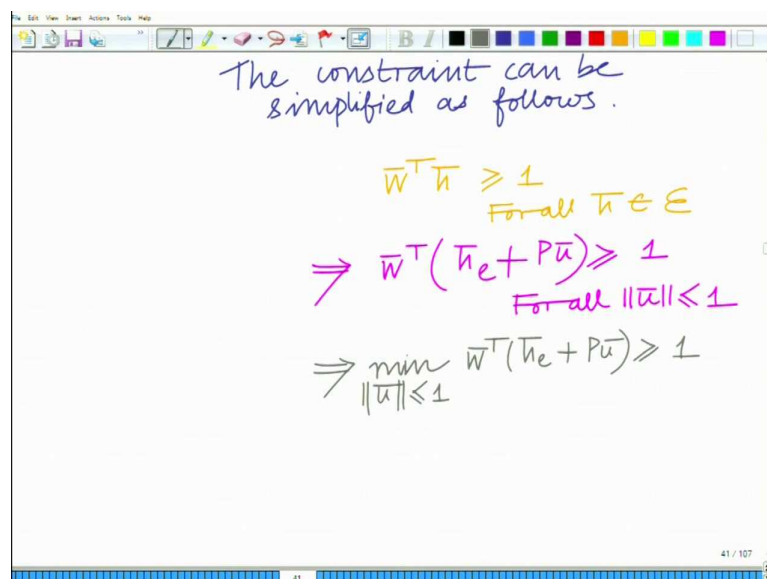 File Edit View Insert Actions Tools Help
B I
The constraint can be
simplified as follows.
w̄ᵀh̄ ⩾ 1
For all h̄ ∈ ℰ
⇒ w̄ᵀ(h̄ₑ + Pū) ⩾ 1
For all ||ū|| ⩽ 1
⇒ min w̄ᵀ(h̄ₑ + Pū) ⩾ 1
||ū|| ⩽ 1
41 / 107
41